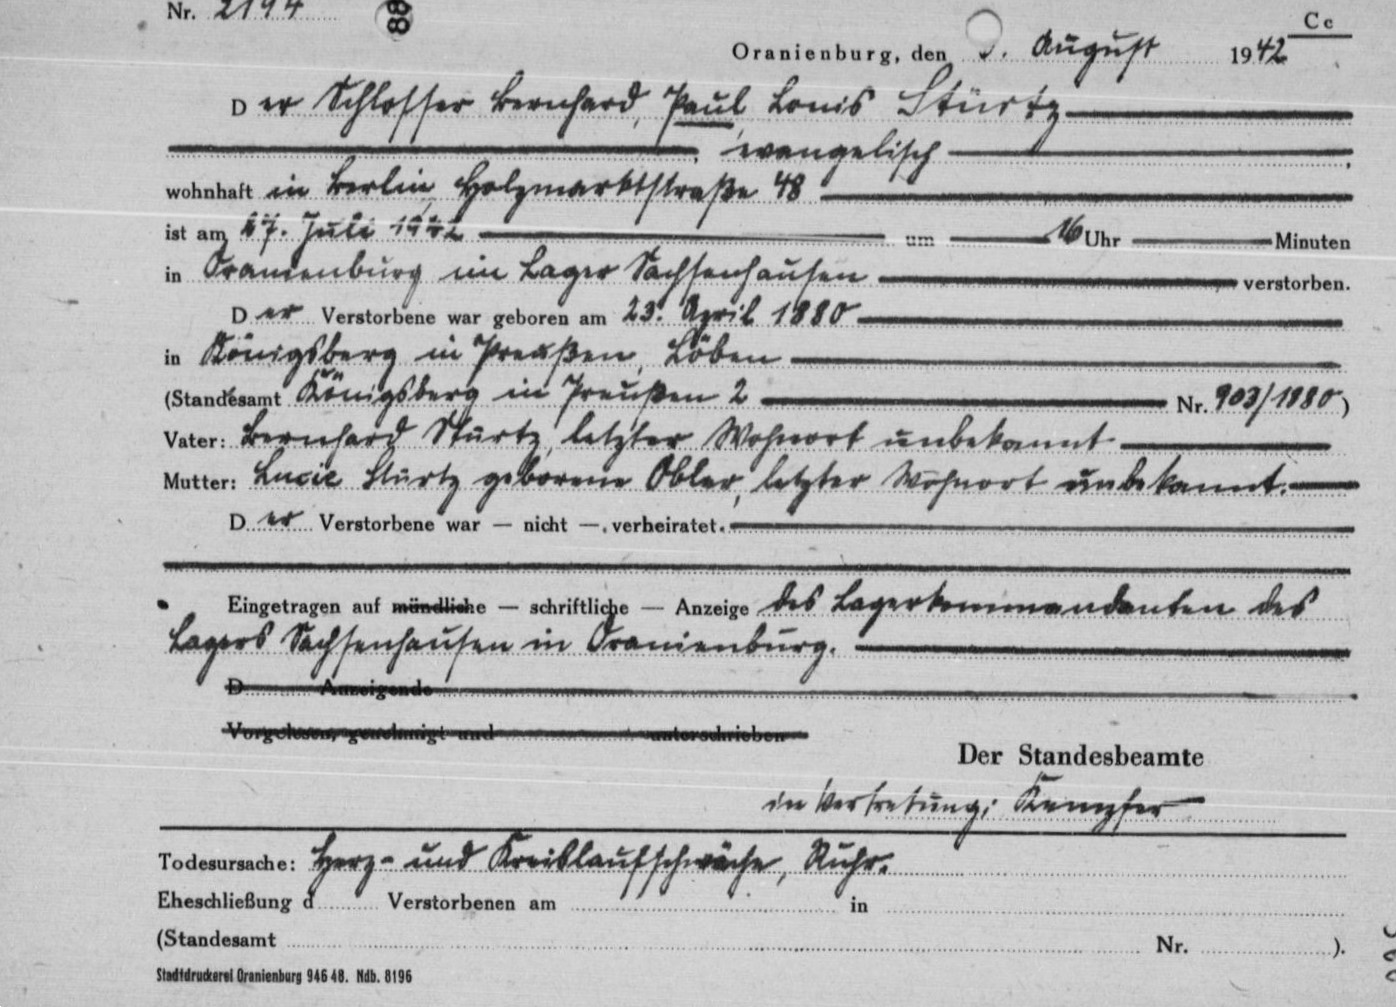 Nr. 2194
88
Cc
Oranienburg, den 5. August 1942
Der Schlosser Bernhard, Paul Louis Stürtz
, evangelisch ,
wohnhaft in Berlin, Holzmarktstraße 48
ist am 27. Juli 1942 um 16 Uhr Minuten
in Oranienburg im Lager Sachsenhausen verstorben.
Der Verstorbene war geboren am 23. April 1880
in Königsberg in Preußen, Löben
(Standesamt Königsberg in Preußen 2 Nr. 903/1880)
Vater: Bernhard Stürtz, letzter Wohnort unbekannt
Mutter: Lucie Stürtz geborene Obler, letzter Wohnort unbekannt.
Der Verstorbene war — nicht — verheiratet.
Eingetragen auf mündliche — schriftliche — Anzeige des Lagerkommandanten des
Lagers Sachsenhausen in Oranienburg.
D Anzeigende
Vorgelesen, genehmigt und unterschrieben
Der Standesbeamte
in Vertretung: Kempfer
Todesursache: Herz- und Kreislaufschwäche, Ruhr.
Eheschließung d Verstorbenen am in
(Standesamt Nr. ).
Stadtdruckerei Oranienburg 946 48. Ndb. 8196